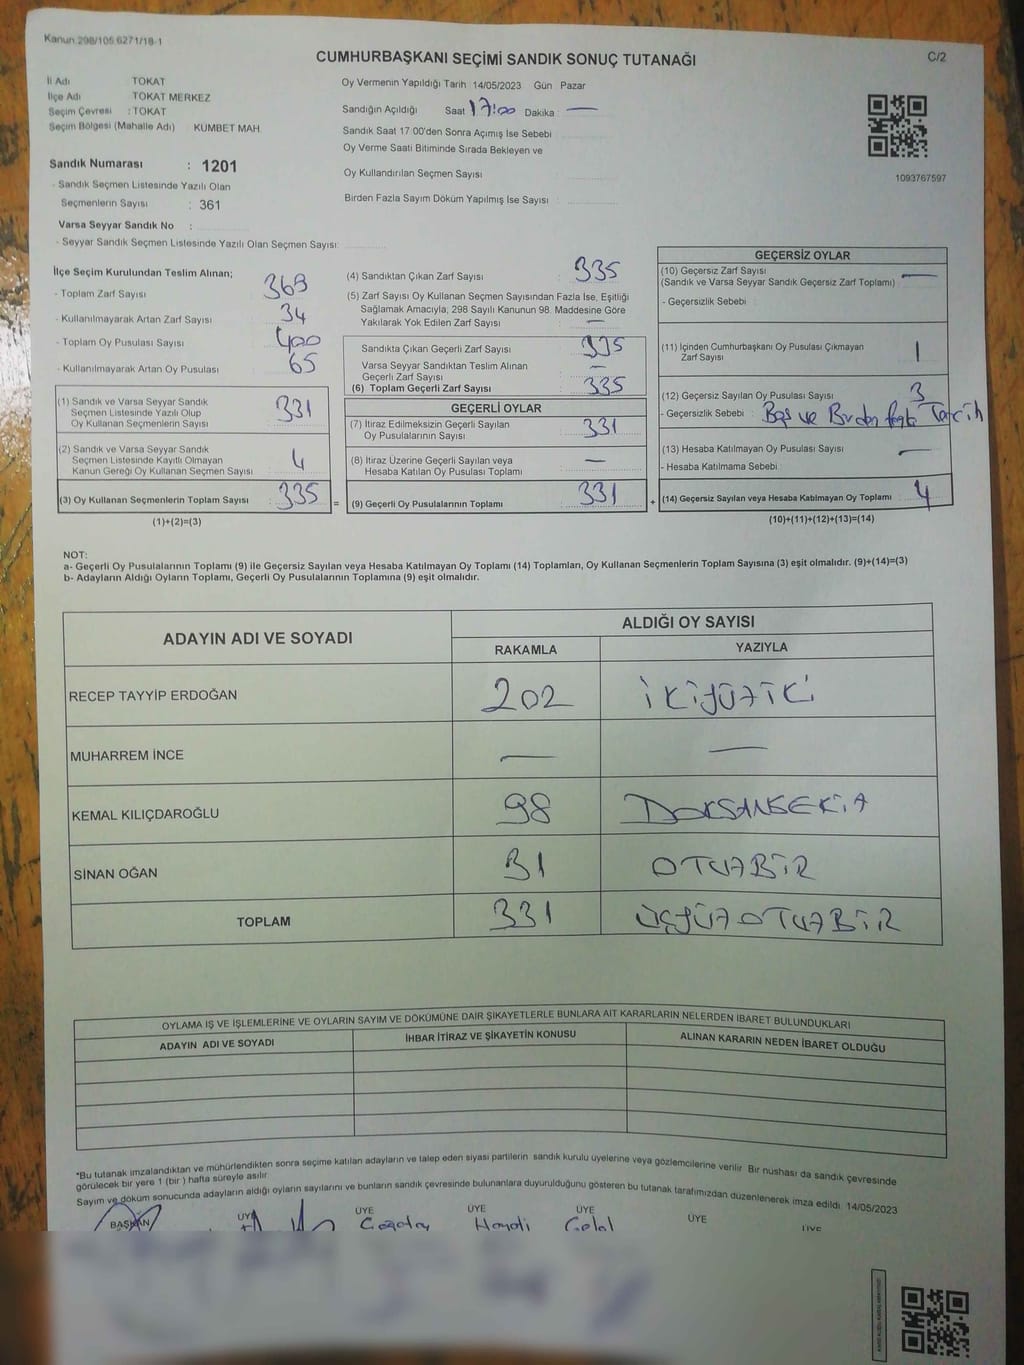 Kanun 298/105 6271/18-1
CUMHURBAŞKANI SEÇİMİ SANDIK SONUÇ TUTANAĞI
C/2
İl Adı : TOKAT
İlçe Adı : TOKAT MERKEZ
Seçim Çevresi : TOKAT
Seçim Bölgesi (Mahalle Adı) KÜMBET MAH.
Oy Vermenin Yapıldığı Tarih 14/05/2023 Gün Pazar
Sandığın Açıldığı Saat 17:00 Dakika : —
Sandık Saat 17 00'den Sonra Açımış İse Sebebi
Oy Verme Saati Bitiminde Sırada Bekleyen ve
Oy Kullandırılan Seçmen Sayısı
Birden Fazla Sayım Döküm Yapılmış İse Sayısı
1093767597
Sandık Numarası : 1201
- Sandık Seçmen Listesinde Yazılı Olan
Seçmenlerin Sayısı : 361
Varsa Seyyar Sandık No :
- Seyyar Sandık Seçmen Listesinde Yazılı Olan Seçmen Sayısı:
İlçe Seçim Kurulundan Teslim Alınan;
- Toplam Zarf Sayısı 369
- Kullanılmayarak Artan Zarf Sayısı 34
- Toplam Oy Pusulası Sayısı 400
- Kullanılmayarak Artan Oy Pusulası 65
(1) Sandık ve Varsa Seyyar Sandık
Seçmen Listesinde Yazılı Olup
Oy Kullanan Seçmenlerin Sayısı 331
(2) Sandık ve Varsa Seyyar Sandık
Seçmen Listesinde Kayıtlı Olmayan
Kanun Gereği Oy Kullanan Seçmen Sayısı 4
(3) Oy Kullanan Seçmenlerin Toplam Sayısı 335 =
(1)+(2)=(3)
(4) Sandıktan Çıkan Zarf Sayısı 335
(5) Zarf Sayısı Oy Kullanan Seçmen Sayısından Fazla İse, Eşitliği
Sağlamak Amacıyla, 298 Sayılı Kanunun 98. Maddesine Göre
Yakılarak Yok Edilen Zarf Sayısı —
Sandıkta Çıkan Geçerli Zarf Sayısı 335
Varsa Seyyar Sandıktan Teslim Alınan
Geçerli Zarf Sayısı —
(6) Toplam Geçerli Zarf Sayısı 335
GEÇERLİ OYLAR
(7) İtiraz Edilmeksizin Geçerli Sayılan
Oy Pusulalarının Sayısı 331
(8) İtiraz Üzerine Geçerli Sayılan veya
Hesaba Katılan Oy Pusulası Toplamı —
(9) Geçerli Oy Pusulalarının Toplamı 331 +
GEÇERSİZ OYLAR
(10) Geçersiz Zarf Sayısı —
(Sandık ve Varsa Seyyar Sandık Geçersiz Zarf Toplamı)
- Geçersizlik Sebebi
(11) İçinden Cumhurbaşkanı Oy Pusulası Çıkmayan
Zarf Sayısı 1
(12) Geçersiz Sayılan Oy Pusulası Sayısı 3
- Geçersizlik Sebebi : Boş ve Birden fazla Tercih
(13) Hesaba Katılmayan Oy Pusulası Sayısı —
- Hesaba Katılmama Sebebi
(14) Geçersiz Sayılan veya Hesaba Katılmayan Oy Toplamı 4
(10)+(11)+(12)+(13)=(14)
NOT:
a- Geçerli Oy Pusulalarının Toplamı (9) ile Geçersiz Sayılan veya Hesaba Katılmayan Oy Toplamı (14) Toplamları, Oy Kullanan Seçmenlerin Toplam Sayısına (3) eşit olmalıdır. (9)+(14)=(3)
b- Adayların Aldığı Oyların Toplamı, Geçerli Oy Pusulalarının Toplamına (9) eşit olmalıdır.
ADAYIN ADI VE SOYADI ALDIĞI OY SAYISI
RAKAMLA YAZIYLA
RECEP TAYYİP ERDOĞAN 202 İKİYÜZİKİ
MUHARREM İNCE — —
KEMAL KILIÇDAROĞLU 98 DOKSANSEKİZ
SİNAN OĞAN 31 OTUZBİR
TOPLAM 331 ÜÇYÜZOTUZBİR
OYLAMA İŞ VE İŞLEMLERİNE VE OYLARIN SAYIM VE DÖKÜMÜNE DAİR ŞİKAYETLERLE BUNLARA AİT KARARLARIN NELERDEN İBARET BULUNDUKLARI
ADAYIN ADI VE SOYADI İHBAR İTİRAZ VE ŞİKAYETİN KONUSU ALINAN KARARIN NEDEN İBARET OLDUĞU
*Bu tutanak imzalandıktan ve mühürlendikten sonra seçime katılan adayların ve talep eden siyasi partilerin sandık kurulu üyelerine veya gözlemcilerine verilir Bir nüshası da sandık çevresinde
görülecek bir yere 1 (bir ) hafta süreyle asılır
Sayım ve döküm sonucunda adayların aldığı oyların sayılarını ve bunların sandık çevresinde bulunanlara duyurulduğunu gösteren bu tutanak tarafımızdan düzenlenerek imza edildi 14/05/2023
BAŞKAN ÜYE ÜYE ÜYE ÜYE ÜYE